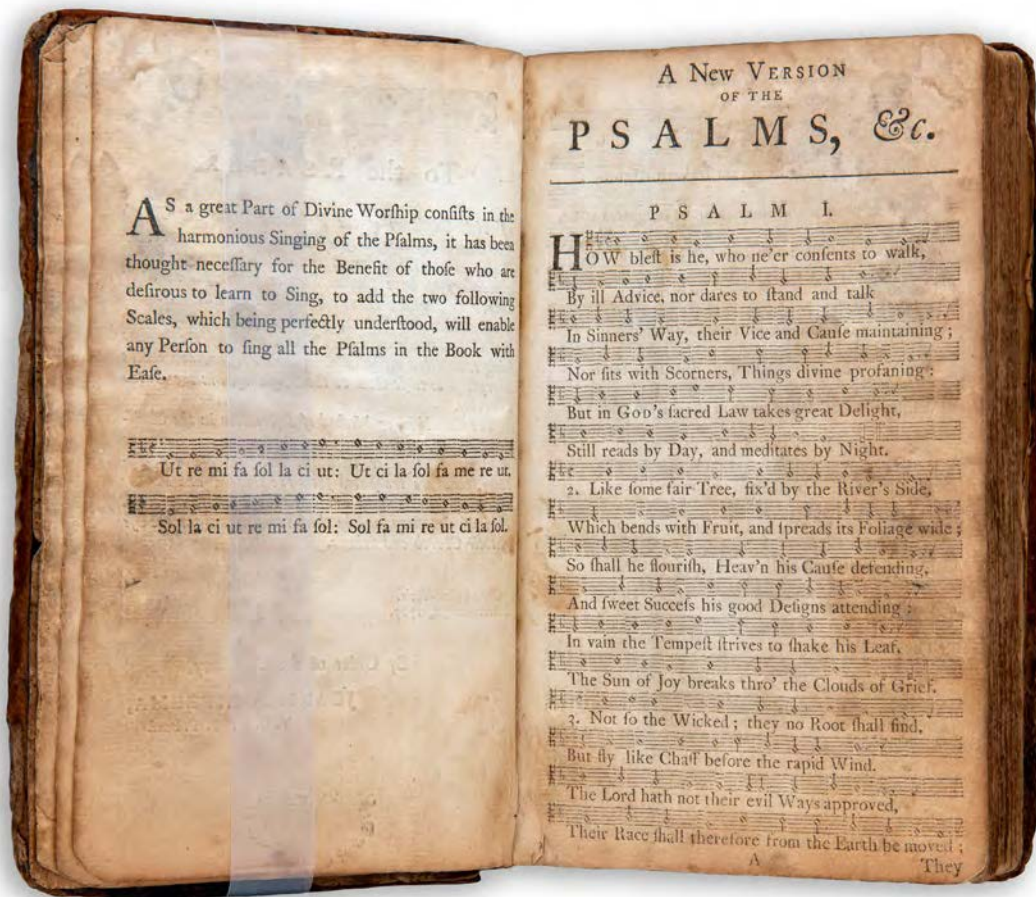 AS a great Part of Divine Worſhip conſiſts in the
harmonious Singing of the Pſalms, it has been
thought neceſſary for the Benefit of thoſe who are
deſirous to learn to Sing, to add the two following
Scales, which being perfectly underſtood, will enable
any Perſon to ſing all the Pſalms in the Book with
Eaſe.
Ut re mi fa ſol la ci ut: Ut ci la ſol fa me re ut.
Sol la ci ut re mi fa ſol: Sol fa mi re ut ci la ſol.
A New VERSION
OF THE
PSALMS, &c.
PSALM I.
HOW bleſt is he, who ne'er conſents to walk,
By ill Advice, nor dares to ſtand and talk
In Sinners' Way, their Vice and Cauſe maintaining;
Nor ſits with Scorners, Things divine profaning:
But in GOD's ſacred Law takes great Delight,
Still reads by Day, and meditates by Night.
2. Like ſome fair Tree, fix'd by the River's Side,
Which bends with Fruit, and ſpreads its Foliage wide;
So ſhall he flouriſh, Heav'n his Cauſe defending,
And ſweet Succeſs his good Deſigns attending:
In vain the Tempeſt ſtrives to ſhake his Leaf,
The Sun of Joy breaks thro' the Clouds of Grief.
3. Not ſo the Wicked; they no Root ſhall find,
But fly like Chaff before the rapid Wind.
The Lord hath not their evil Ways approved,
Their Race ſhall therefore from the Earth be moved;
A
They